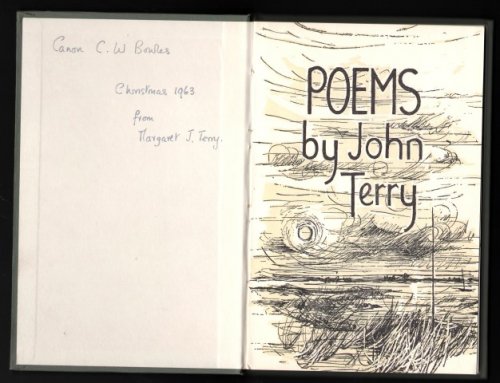 Canon C. W Bowles
Christmas 1963
from
Margaret J. Terry.
POEMS
by John
Terry